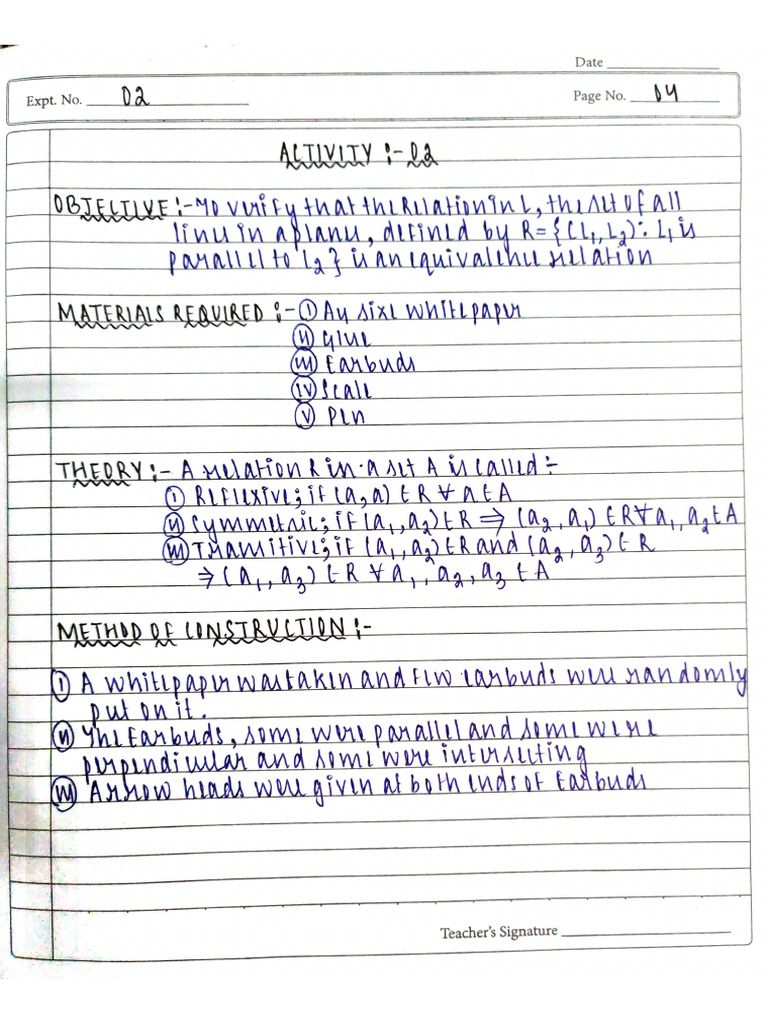 Date
Expt. No. 02
Page No. 04
ACTIVITY :- 02
OBJECTIVE :- To verify that the Relation in L, the set of all
lines in a plane, defined by R = {(L₁, L₂) : L₁ is
parallel to L₂} is an equivalence relation
MATERIALS REQUIRED :- (i) A4 size white paper
(ii) Glue
(iii) Earbuds
(iv) Scale
(v) Pen
THEORY :- A relation R in a set A is called :-
(i) Reflexive; if (a, a) ∈ R ∀ a ∈ A
(ii) Symmetric; if (a₁, a₂) ∈ R ⇒ (a₂, a₁) ∈ R ∀ a₁, a₂ ∈ A
(iii) Transitive; if (a₁, a₂) ∈ R and (a₂, a₃) ∈ R
⇒ (a₁, a₃) ∈ R ∀ a₁, a₂, a₃ ∈ A
METHOD OF CONSTRUCTION :-
(i) A white paper was taken and few earbuds were randomly
put on it.
(ii) The Earbuds, some were parallel and some were
perpendicular and some were intersecting
(iii) Arrow heads were given at both ends of Earbuds
Teacher's Signature